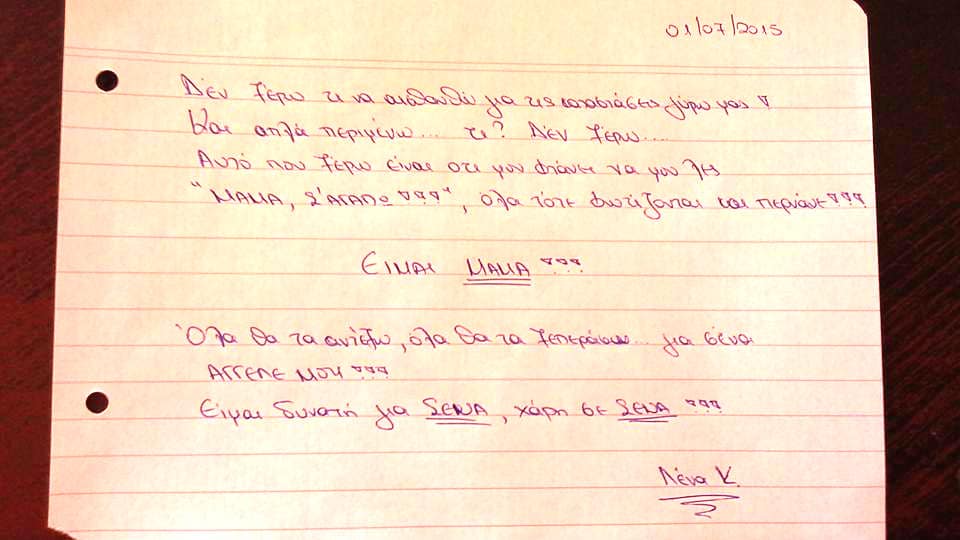 01/07/2015
Δεν ξέρω τι να αισθανθώ για τις καταστάσεις γύρω μας ♡
Και απλά περιμένω... τι? Δεν ξέρω....
Αυτό που ξέρω είναι οτι μου φτάνει να μου λες
"ΜΑΜΑ, Σ'ΑΓΑΠΩ ♡♡♡", όλα τότε φωτίζονται και περνάνε ♡♡♡
ΕΙΜΑΙ ΜΑΜΑ ♡♡♡
Όλα θα τα αντέξω, όλα θα τα ξεπεράσω... για σένα
ΑΓΓΕΛΕ ΜΟΥ ♡♡♡
Είμαι δυνατή για ΣΕΝΑ, χάρη σε ΣΕΝΑ ♡♡♡
Λένα Κ.